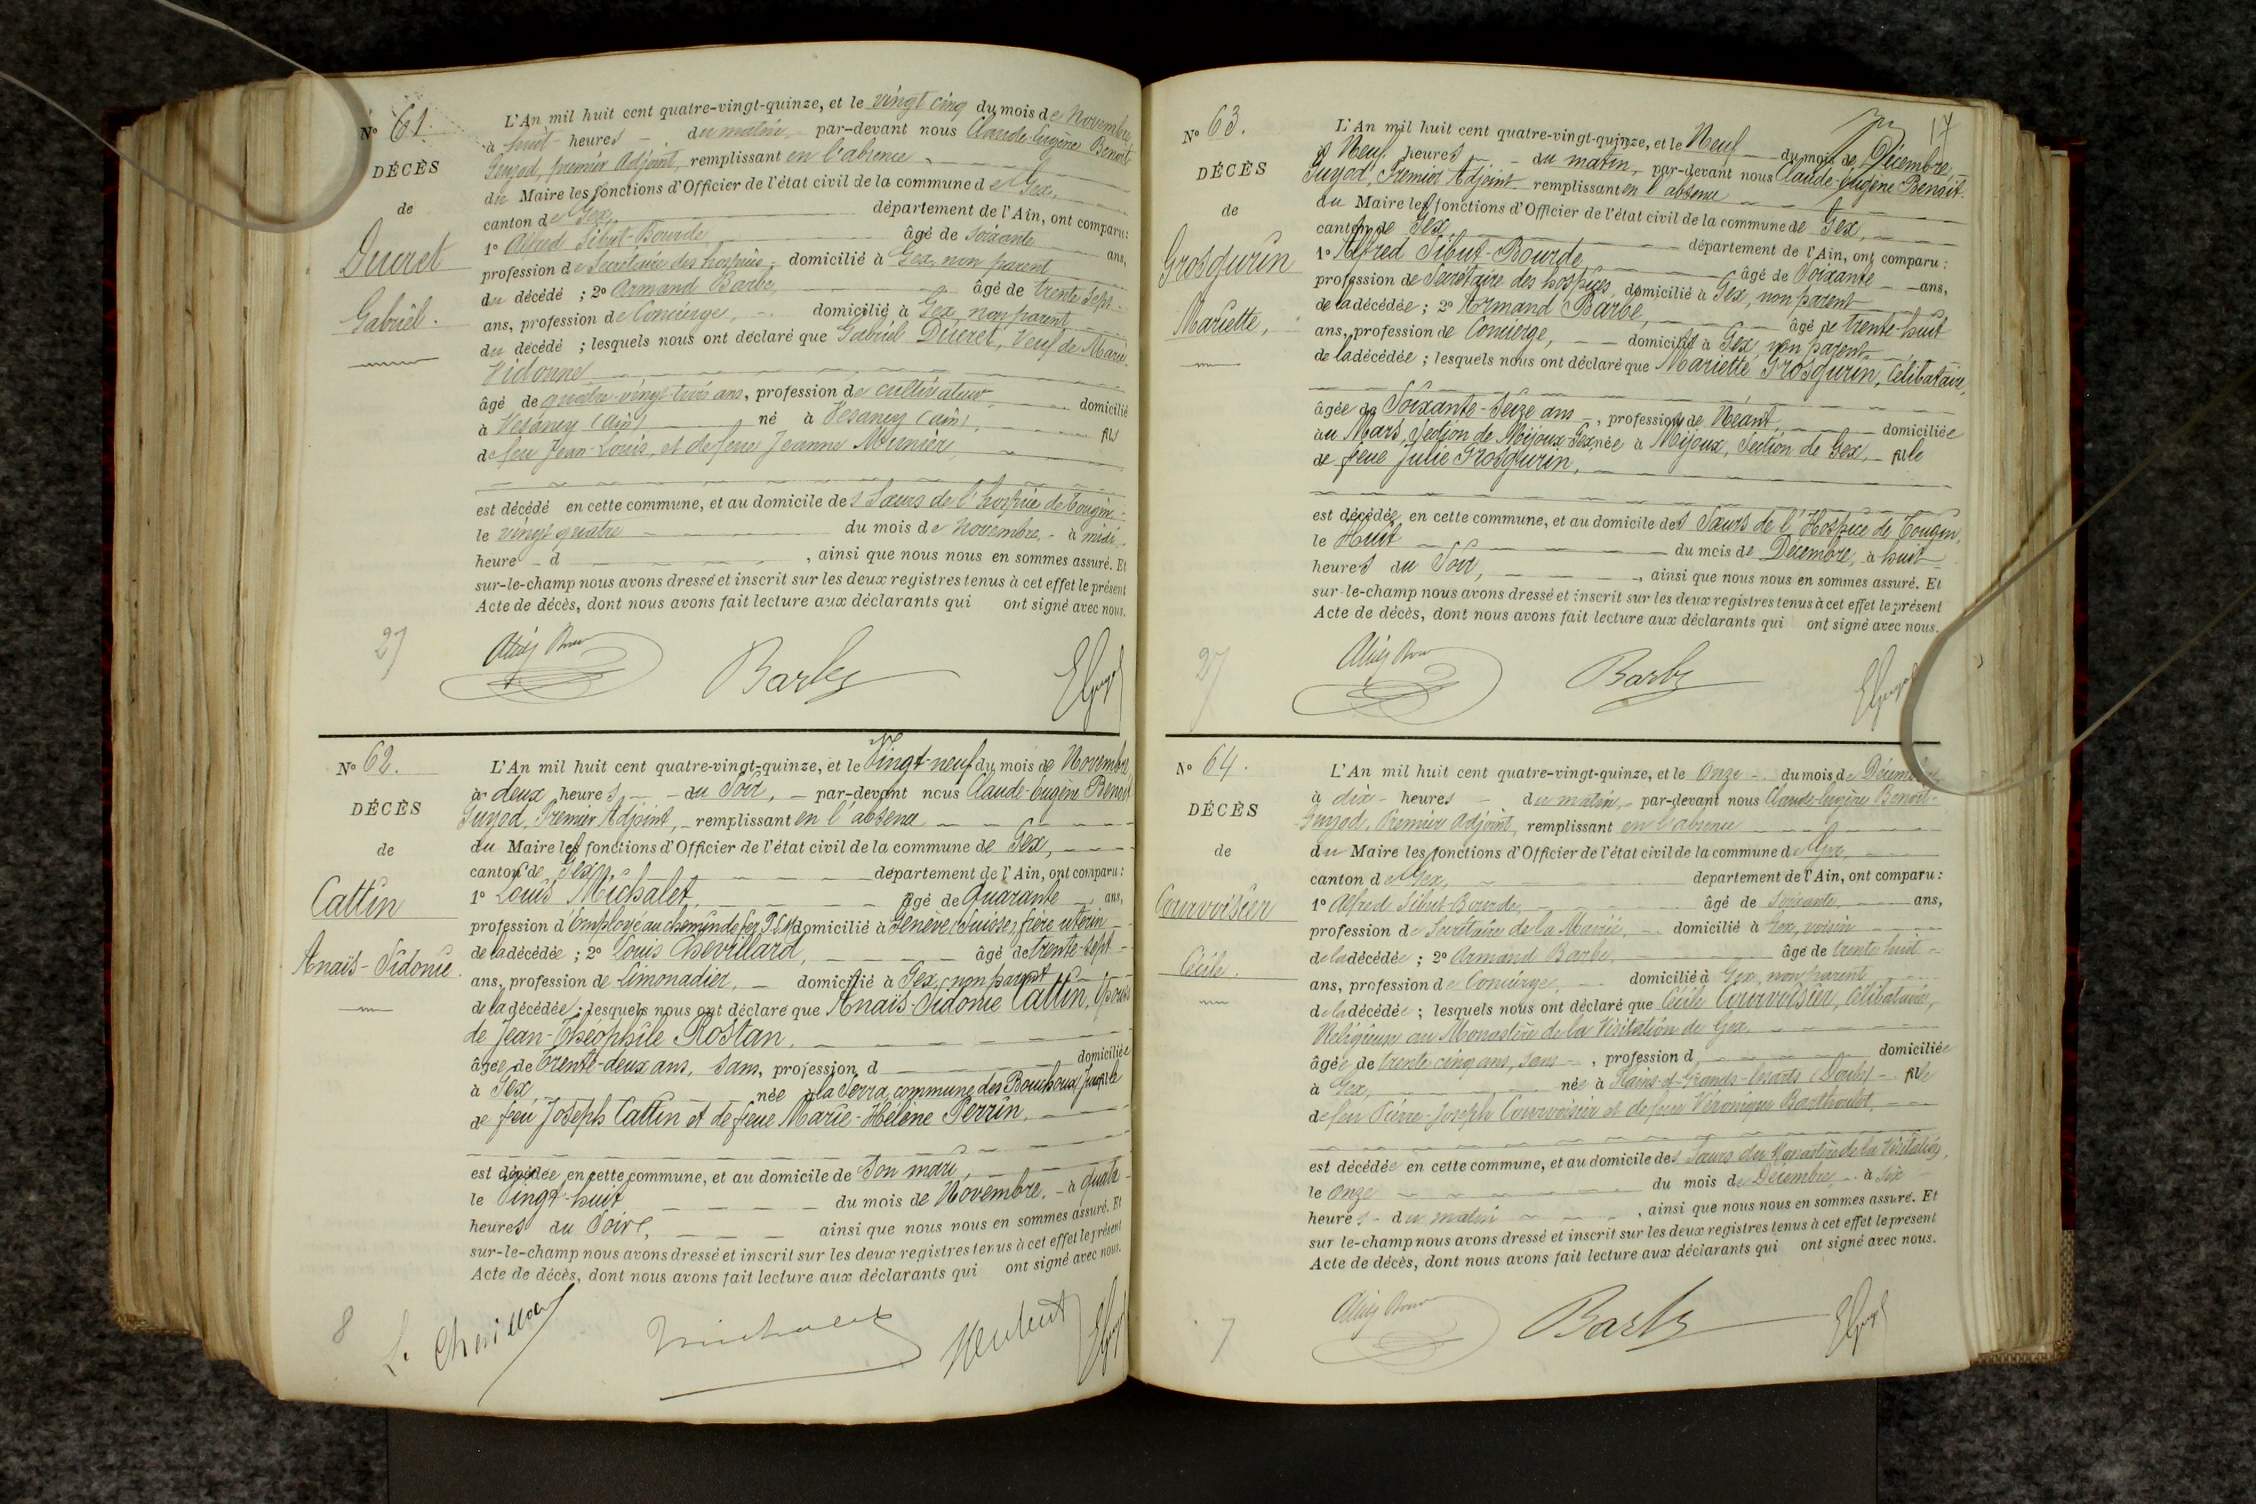 N° 61.
DÉCÈS
de
Ducret
Gabriel.
L'An mil huit cent quatre-vingt-quinze, et le vingt cinq du mois de Novembre
à huit heures du matin, par-devant nous Claude-Eugène Benoit
Guyod, premier Adjoint, remplissant en l'absence
du Maire les fonctions d'Officier de l'état civil de la commune de Gex,
canton de Gex, département de l'Ain, ont comparu :
1° Alfred Sibut-Bourde, âgé de soixante ans,
profession de Secrétaire des hospices, domicilié à Gex, non parent
du décédé ; 2° Armand Barbe, âgé de trente sept
ans, profession de Concierge, domicilié à Gex, non parent
du décédé ; lesquels nous ont déclaré que Gabriel Ducret, Veuf de Marie
Vidonne
âgé de quatre vingt trois ans, profession de cultivateur, domicilié
à Vesancy (ain) né à Vesancy (ain), fils
de feu Jean-Louis, et de feue Jeanne Munier,
est décédé en cette commune, et au domicile des Sœurs de l'hospice de Tougin
le vingt quatre du mois de novembre, à midi
heure d , ainsi que nous nous en sommes assuré. Et
sur-le-champ nous avons dressé et inscrit sur les deux registres tenus à cet effet le présent
Acte de décès, dont nous avons fait lecture aux déclarants qui ont signé avec nous.
27
Barbe
EGuyod
N° 62.
DÉCÈS
de
Cattin
Anaïs-Sidonie.
L'An mil huit cent quatre-vingt-quinze, et le Vingt-neuf du mois de Novembre
à deux heures, du Soir, par-devant nous Claude-Eugène Benoit
Guyod, Premier Adjoint, remplissant en l'absence
du Maire les fonctions d'Officier de l'état civil de la commune de Gex,
canton de Gex, département de l'Ain, ont comparu :
1° Louis Michalet, âgé de Quarante ans,
profession d'Employé au chemin de fer P.L.M. domicilié à Genève (Suisse), frère utérin
de la décédée ; 2° Louis Chevillard, âgé de trente-sept
ans, profession de Limonadier, domicilié à Gex, non parent
de la décédée ; lesquels nous ont déclaré que Anaïs-Sidonie Cattin, Epouse
de Jean-Théophile Rostan,
âgée de Trente-deux ans, sans, profession d domiciliée
à Gex née à la Serra, commune des Bouchoux, Jura, fille
de feu Joseph Cattin et de feue Marie-Hélène Perrin,
est décédée en cette commune, et au domicile de Son mari,
le Vingt-huit du mois de Novembre, à quatre
heures du Soir, ainsi que nous nous en sommes assuré. Et
sur-le-champ nous avons dressé et inscrit sur les deux registres tenus à cet effet le présent
Acte de décès, dont nous avons fait lecture aux déclarants qui ont signé avec nous.
8
L. Chevillard
Michalet
EGuyod
17
N° 63.
DÉCÈS
de
Grosgurin
Mariette,
L'An mil huit cent quatre-vingt-quinze, et le Neuf du mois de Décembre,
à Neuf heures du matin, par-devant nous Claude-Eugène Benoit
Guyod, Premier Adjoint remplissant en l'absence
du Maire les fonctions d'Officier de l'état civil de la commune de Gex,
canton de Gex, département de l'Ain, ont comparu :
1° Alfred Sibut-Bourde, âgé de Soixante ans,
profession de Secrétaire des hospices, domicilié à Gex, non parent
de la décédée ; 2° Armand Barbe, âgé de trente-huit
ans, profession de Concierge, domicilié à Gex, non parent
de la décédée ; lesquels nous ont déclaré que Mariette Grosgurin, Célibataire,
âgée de Soixante-Seize ans, profession de Néant, domiciliée
au Mars, Section de Mijoux-Gex, née à Mijoux, Section de Gex, fille
de feue Julie Grosgurin,
est décédée en cette commune, et au domicile des Sœurs de l'Hospice de Tougin,
le Huit du mois de Décembre, à huit
heures du Soir, , ainsi que nous nous en sommes assuré. Et
sur-le-champ nous avons dressé et inscrit sur les deux registres tenus à cet effet le présent
Acte de décès, dont nous avons fait lecture aux déclarants qui ont signé avec nous.
27
Barbe
EGuyod
N° 64.
DÉCÈS
de
Courvoisier
Cécile.
L'An mil huit cent quatre-vingt-quinze, et le Onze du mois de Décembre
à dix heures du matin, par-devant nous Claude-Eugène Benoit
Guyod, Premier Adjoint, remplissant en l'absence
du Maire les fonctions d'Officier de l'état civil de la commune de Gex,
canton de Gex, département de l'Ain, ont comparu :
1° Alfred Sibut-Bourde, âgé de Soixante ans,
profession de Secrétaire de la Mairie, domicilié à Gex, voisin
de la décédée ; 2° Armand Barbe, âgé de trente huit
ans, profession de Concierge, domicilié à Gex, non parent
de la décédée ; lesquels nous ont déclaré que Cécile Courvoisier, Célibataire,
Religieuse au Monastère de la Visitation de Gex,
âgée de trente cinq ans, sans , profession d domiciliée
à Gex, née à Plains-et-Grands-Essarts (Doubs) fille
de feu Pierre-Joseph Courvoisier et de feue Véronique Barthoulot,
est décédée en cette commune, et au domicile des Sœurs du Monastère de la Visitation,
le Onze du mois de Décembre, à six
heures du matin , ainsi que nous nous en sommes assuré. Et
sur le-champ nous avons dressé et inscrit sur les deux registres tenus à cet effet le présent
Acte de décès, dont nous avons fait lecture aux déclarants qui ont signé avec nous.
7
Barbe
EGuyod